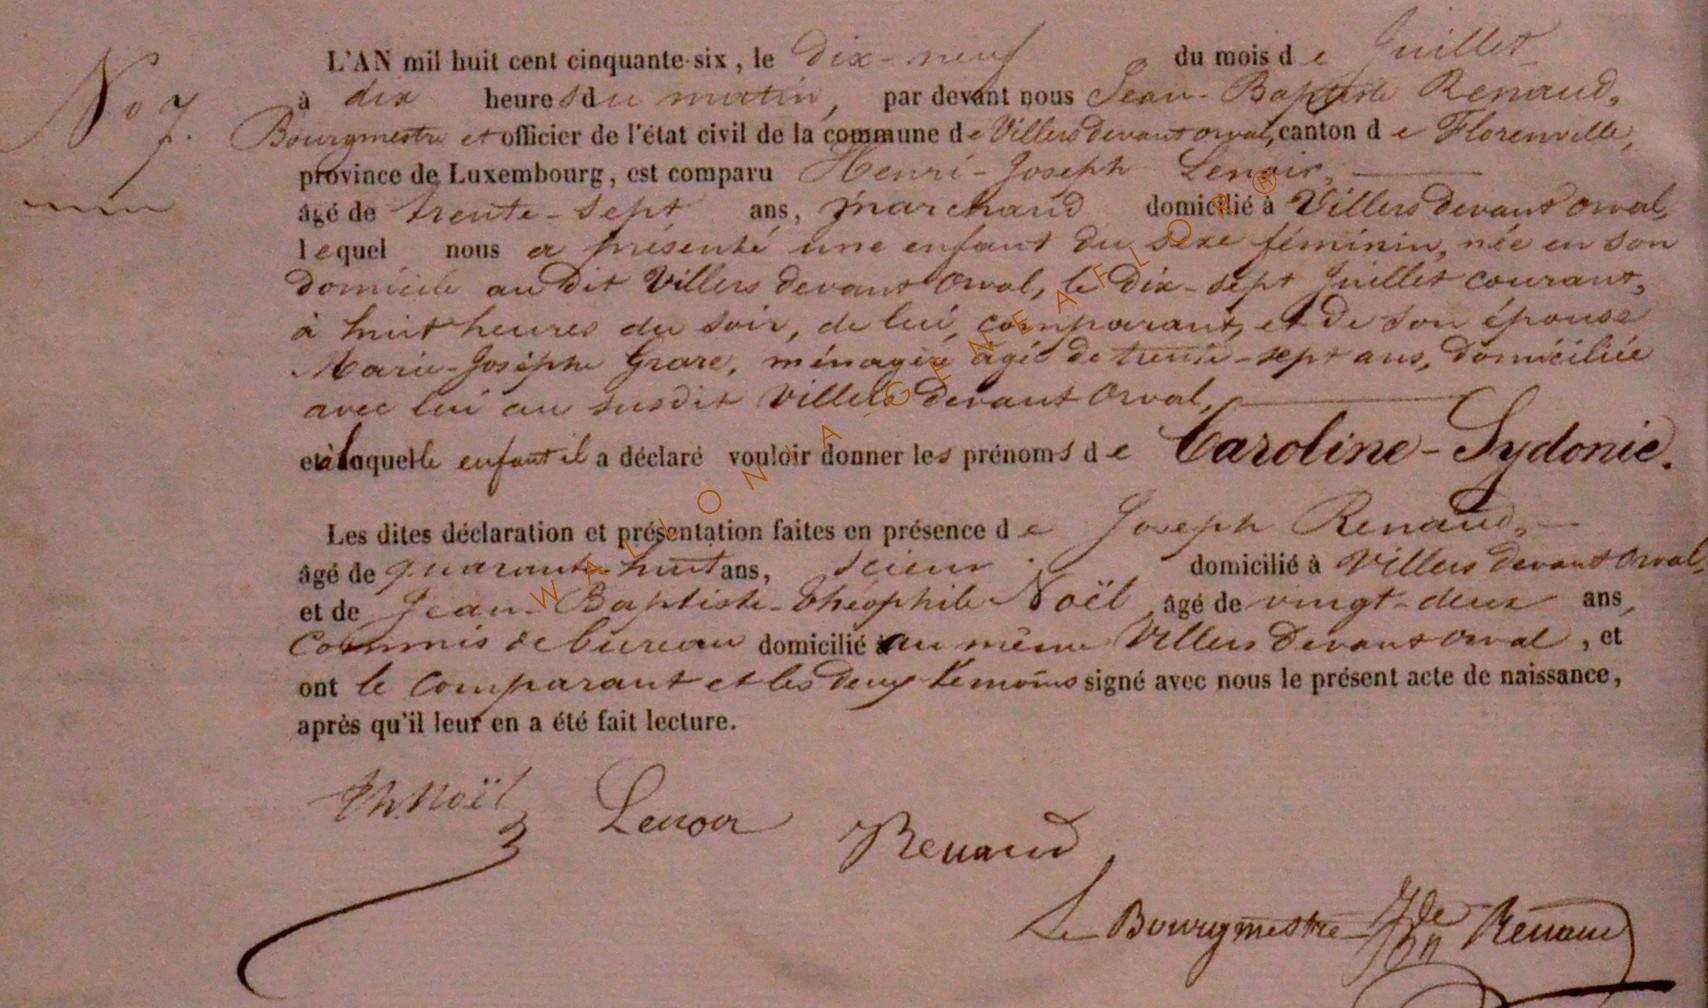 No 7.
L'AN mil huit cent cinquante-six, le dix-neuf du mois de Juillet
à dix heures du matin, par devant nous Jean-Baptiste Renaud,
Bourgmestre et officier de l'état civil de la commune de Villers devant orval, canton de Florenville,
province de Luxembourg, est comparu Henri-Joseph Lenoir,
âgé de trente-sept ans, marchand domicilié à Villers devant orval,
lequel nous a présenté une enfant du sexe féminin, née en son
domicile au dit Villers devant Orval, le dix-sept Juillet courant,
à huit heures du soir, de lui comparant, et de son épouse
Marie-Josèphe Grare, ménagère âgée de trente-sept ans, domiciliée
avec lui au susdit Villers devant Orval,
et à laquelle enfant il a déclaré vouloir donner les prénoms de Caroline-Sydonie.
Les dites déclaration et présentation faites en présence de Joseph Renaud,
âgé de quarante-huit ans, scieur domicilié à Villers devant Orval,
et de Jean-Baptiste-Théophile Noël, âgé de vingt-deux ans,
Commis de bureau domicilié au même Villers devant orval, et
ont le Comparant et les deux témoins signé avec nous le présent acte de naissance,
après qu'il leur en a été fait lecture.
Th. Noël Lenoir Renaud
Le Bourgmestre Renaud
WALLONIA-GENEAFLOR®